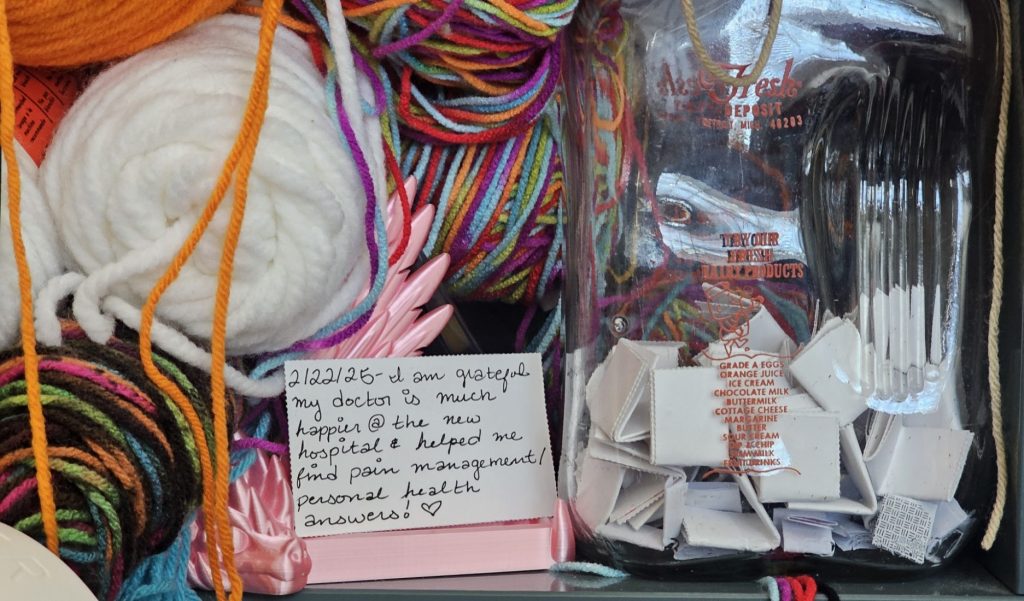 2/22/25- I am grateful
my doctor is much
happier @ the new
hospital & helped me
find pain management/
personal health
answers! ♡
Fresh
DEPOSIT
DETROIT, MICH. 48203
FRESH
DAIRY PRODUCTS
GRADE A EGGS
ORANGE JUICE
ICE CREAM
CHOCOLATE MILK
BUTTERMILK
COTTAGE CHEESE
MARGARINE
BUTTER
SOUR CREAM
DIP & CHIP
SKIM MILK
FRUIT DRINKS